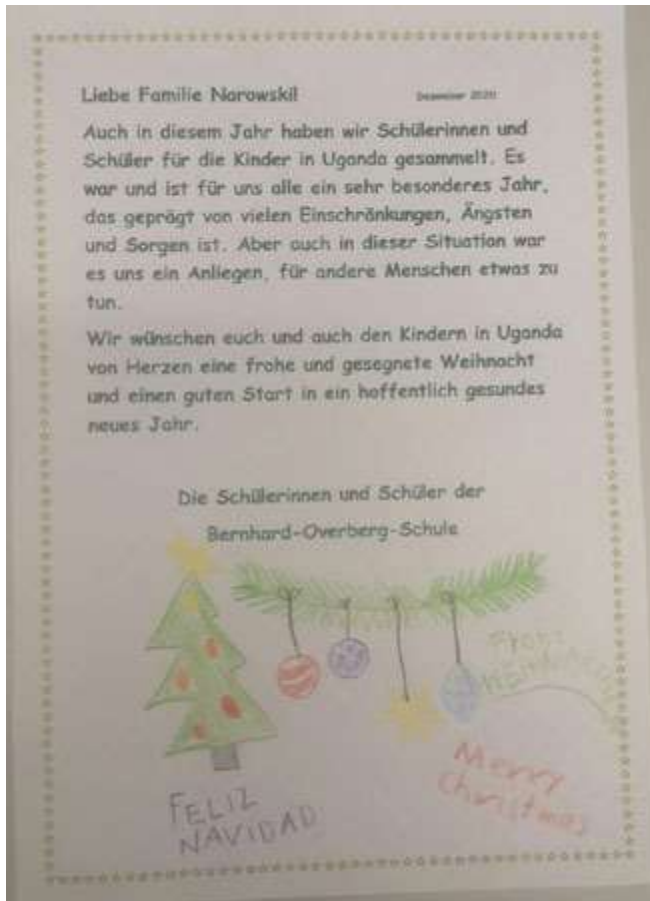 Liebe Familie Narowski! Dezember 2020
Auch in diesem Jahr haben wir Schülerinnen und
Schüler für die Kinder in Uganda gesammelt. Es
war und ist für uns alle ein sehr besonderes Jahr,
das geprägt von vielen Einschränkungen, Ängsten
und Sorgen ist. Aber auch in dieser Situation war
es uns ein Anliegen, für andere Menschen etwas zu
tun.
Wir wünschen euch und auch den Kindern in Uganda
von Herzen eine frohe und gesegnete Weihnacht
und einen guten Start in ein hoffentlich gesundes
neues Jahr.
Die Schülerinnen und Schüler der
Bernhard-Overberg-Schule
Frohe
Merry
Christmas
FELIZ
NAVIDAD